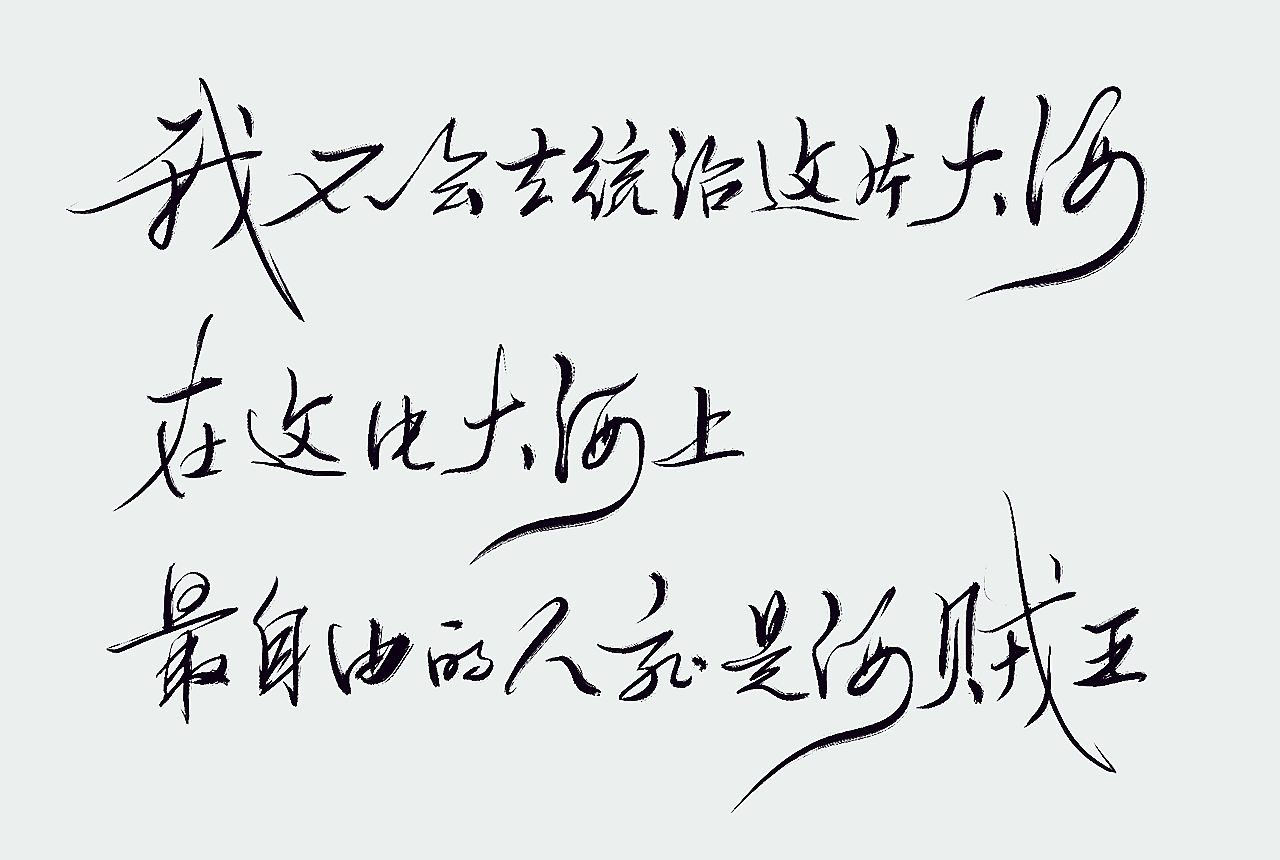 我不会去统治这片大海
在这片大海上
最自由的人就是海贼王